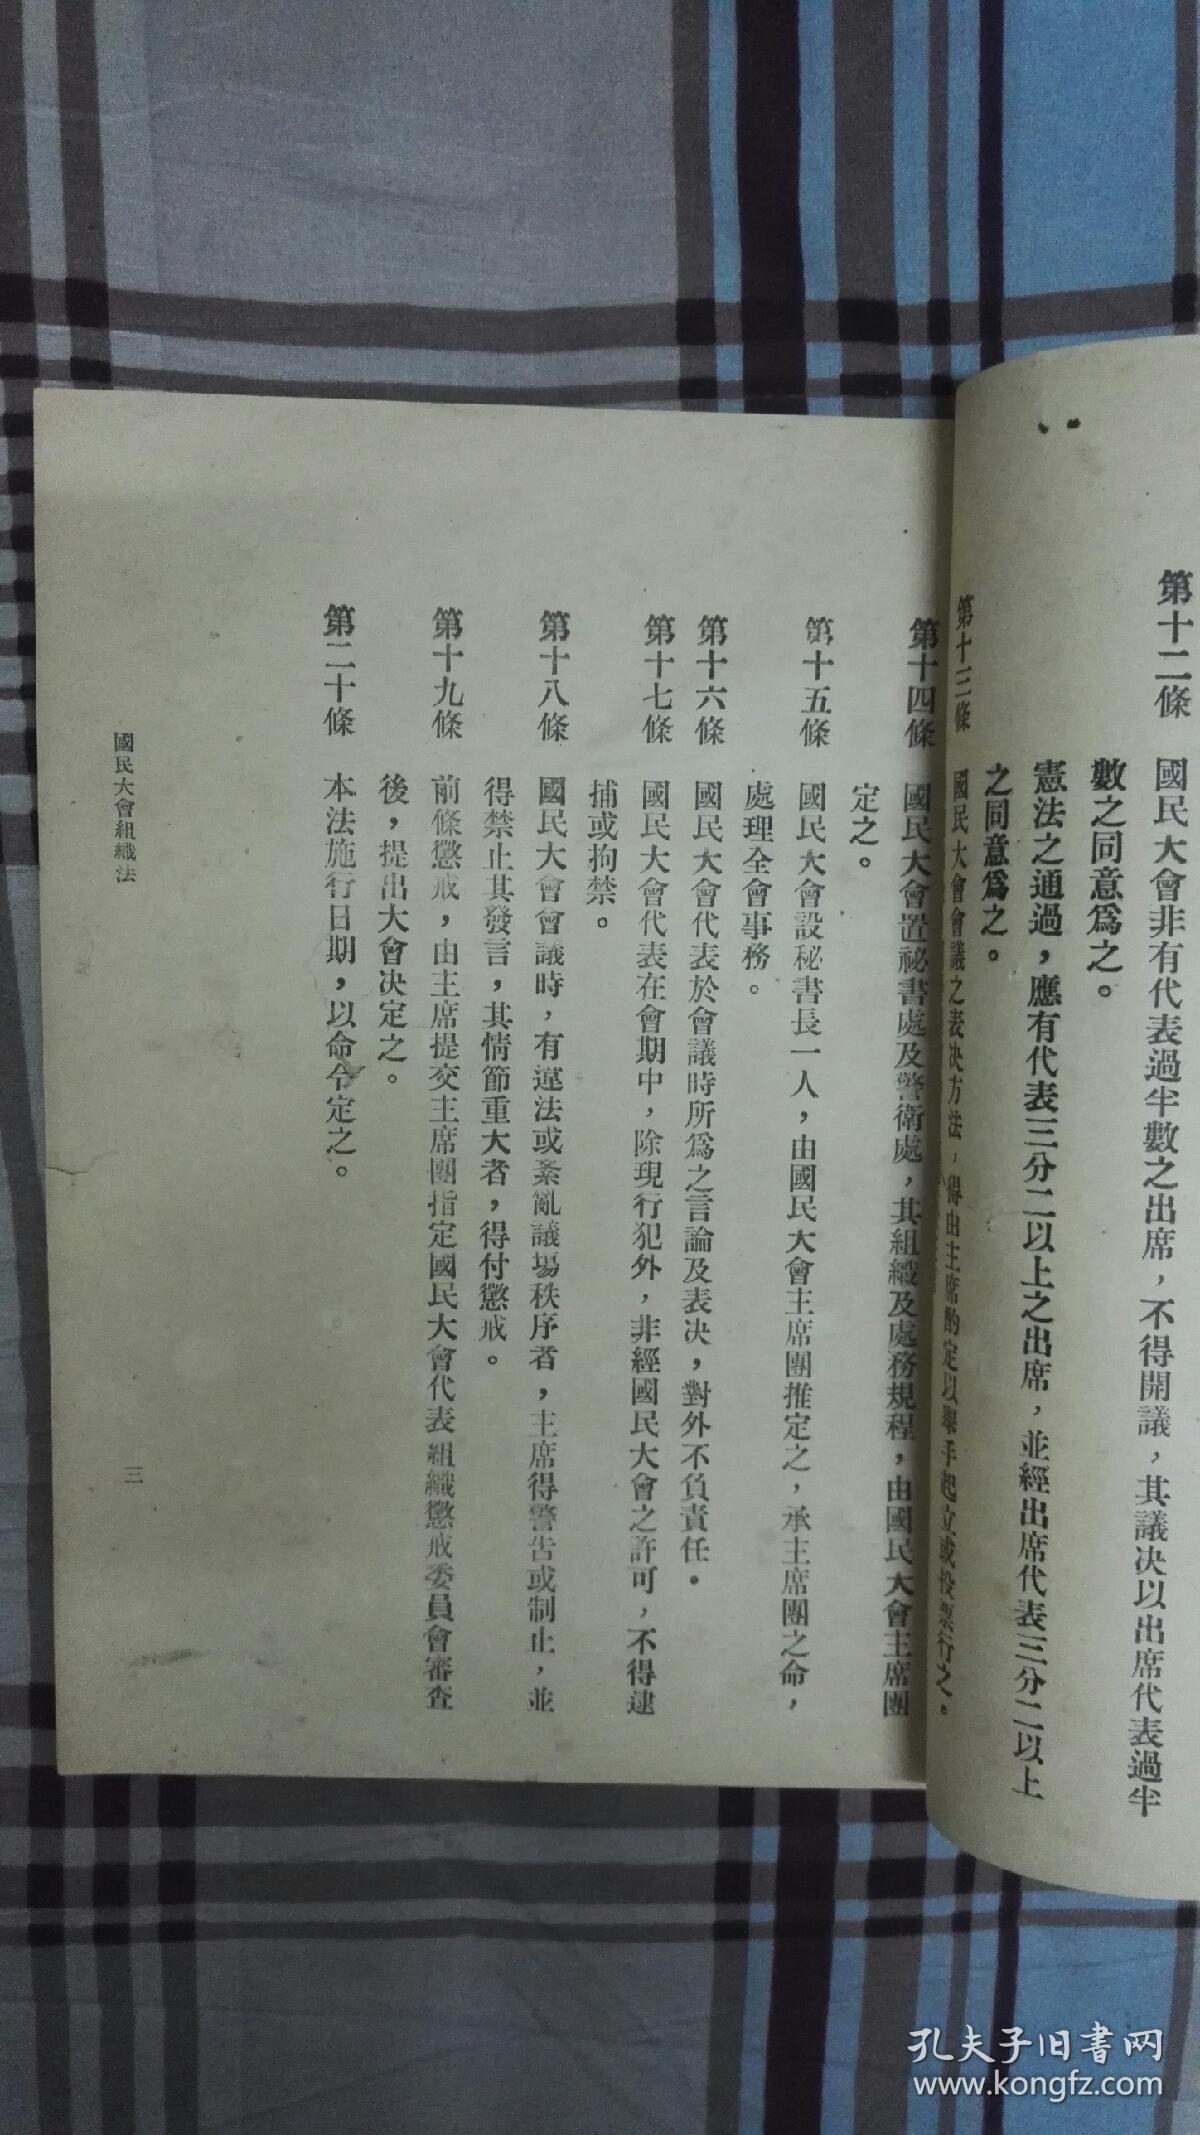 第十二條　國民大會非有代表過半數之出席，不得開議，其議決以出席代表過半
數之同意爲之。
憲法之通過，應有代表三分二以上之出席，並經出席代表三分二以上
之同意爲之。
第十三條　國民大會會議之表決方法，得由主席酌定以舉手起立或投票行之。
第十四條　國民大會置祕書處及警衛處，其組織及處務規程，由國民大會主席團
定之。
第十五條　國民大會設秘書長一人，由國民大會主席團推定之，承主席團之命，
處理全會事務。
第十六條　國民大會代表於會議時所爲之言論及表決，對外不負責任。
第十七條　國民大會代表在會期中，除現行犯外，非經國民大會之許可，不得逮
捕或拘禁。
第十八條　國民大會會議時，有違法或紊亂議場秩序者，主席得警告或制止，並
得禁止其發言，其情節重大者，得付懲戒。
第十九條　前條懲戒，由主席提交主席團指定國民大會代表組織懲戒委員會審查
後，提出大會決定之。
第二十條　本法施行日期，以命令定之。
國民大會組織法
三
孔夫子旧书网
www.kongfz.com